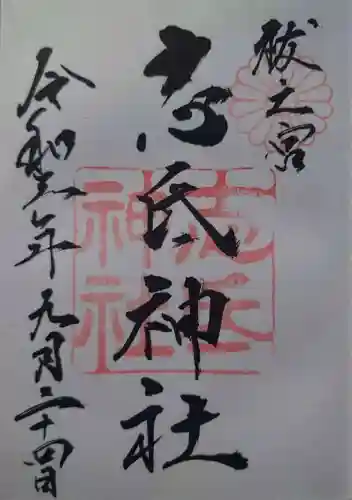 祓之宮
志氐神社
令和三年九月二十四日
志氐
神社